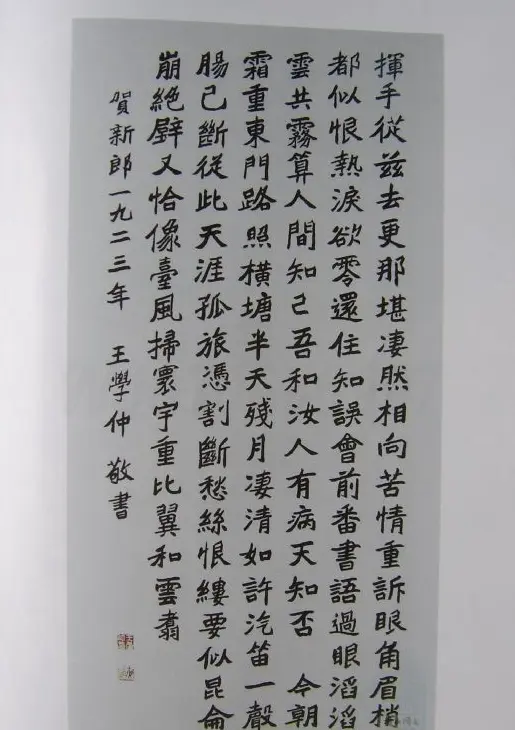 揮手從茲去更那堪凄然相向苦情重訴眼角眉梢
都似恨熱淚欲零還住知誤會前番書語過眼滔滔
雲共霧算人間知己吾和汝人有病天知否 今朝
霜重東門路照橫塘半天殘月凄清如許汽笛一聲
腸已斷從此天涯孤旅憑割斷愁絲恨縷要似昆侖
崩絕壁又恰像臺風掃寰宇重比翼和雲翥
賀新郎一九二三年 王學仲 敬書